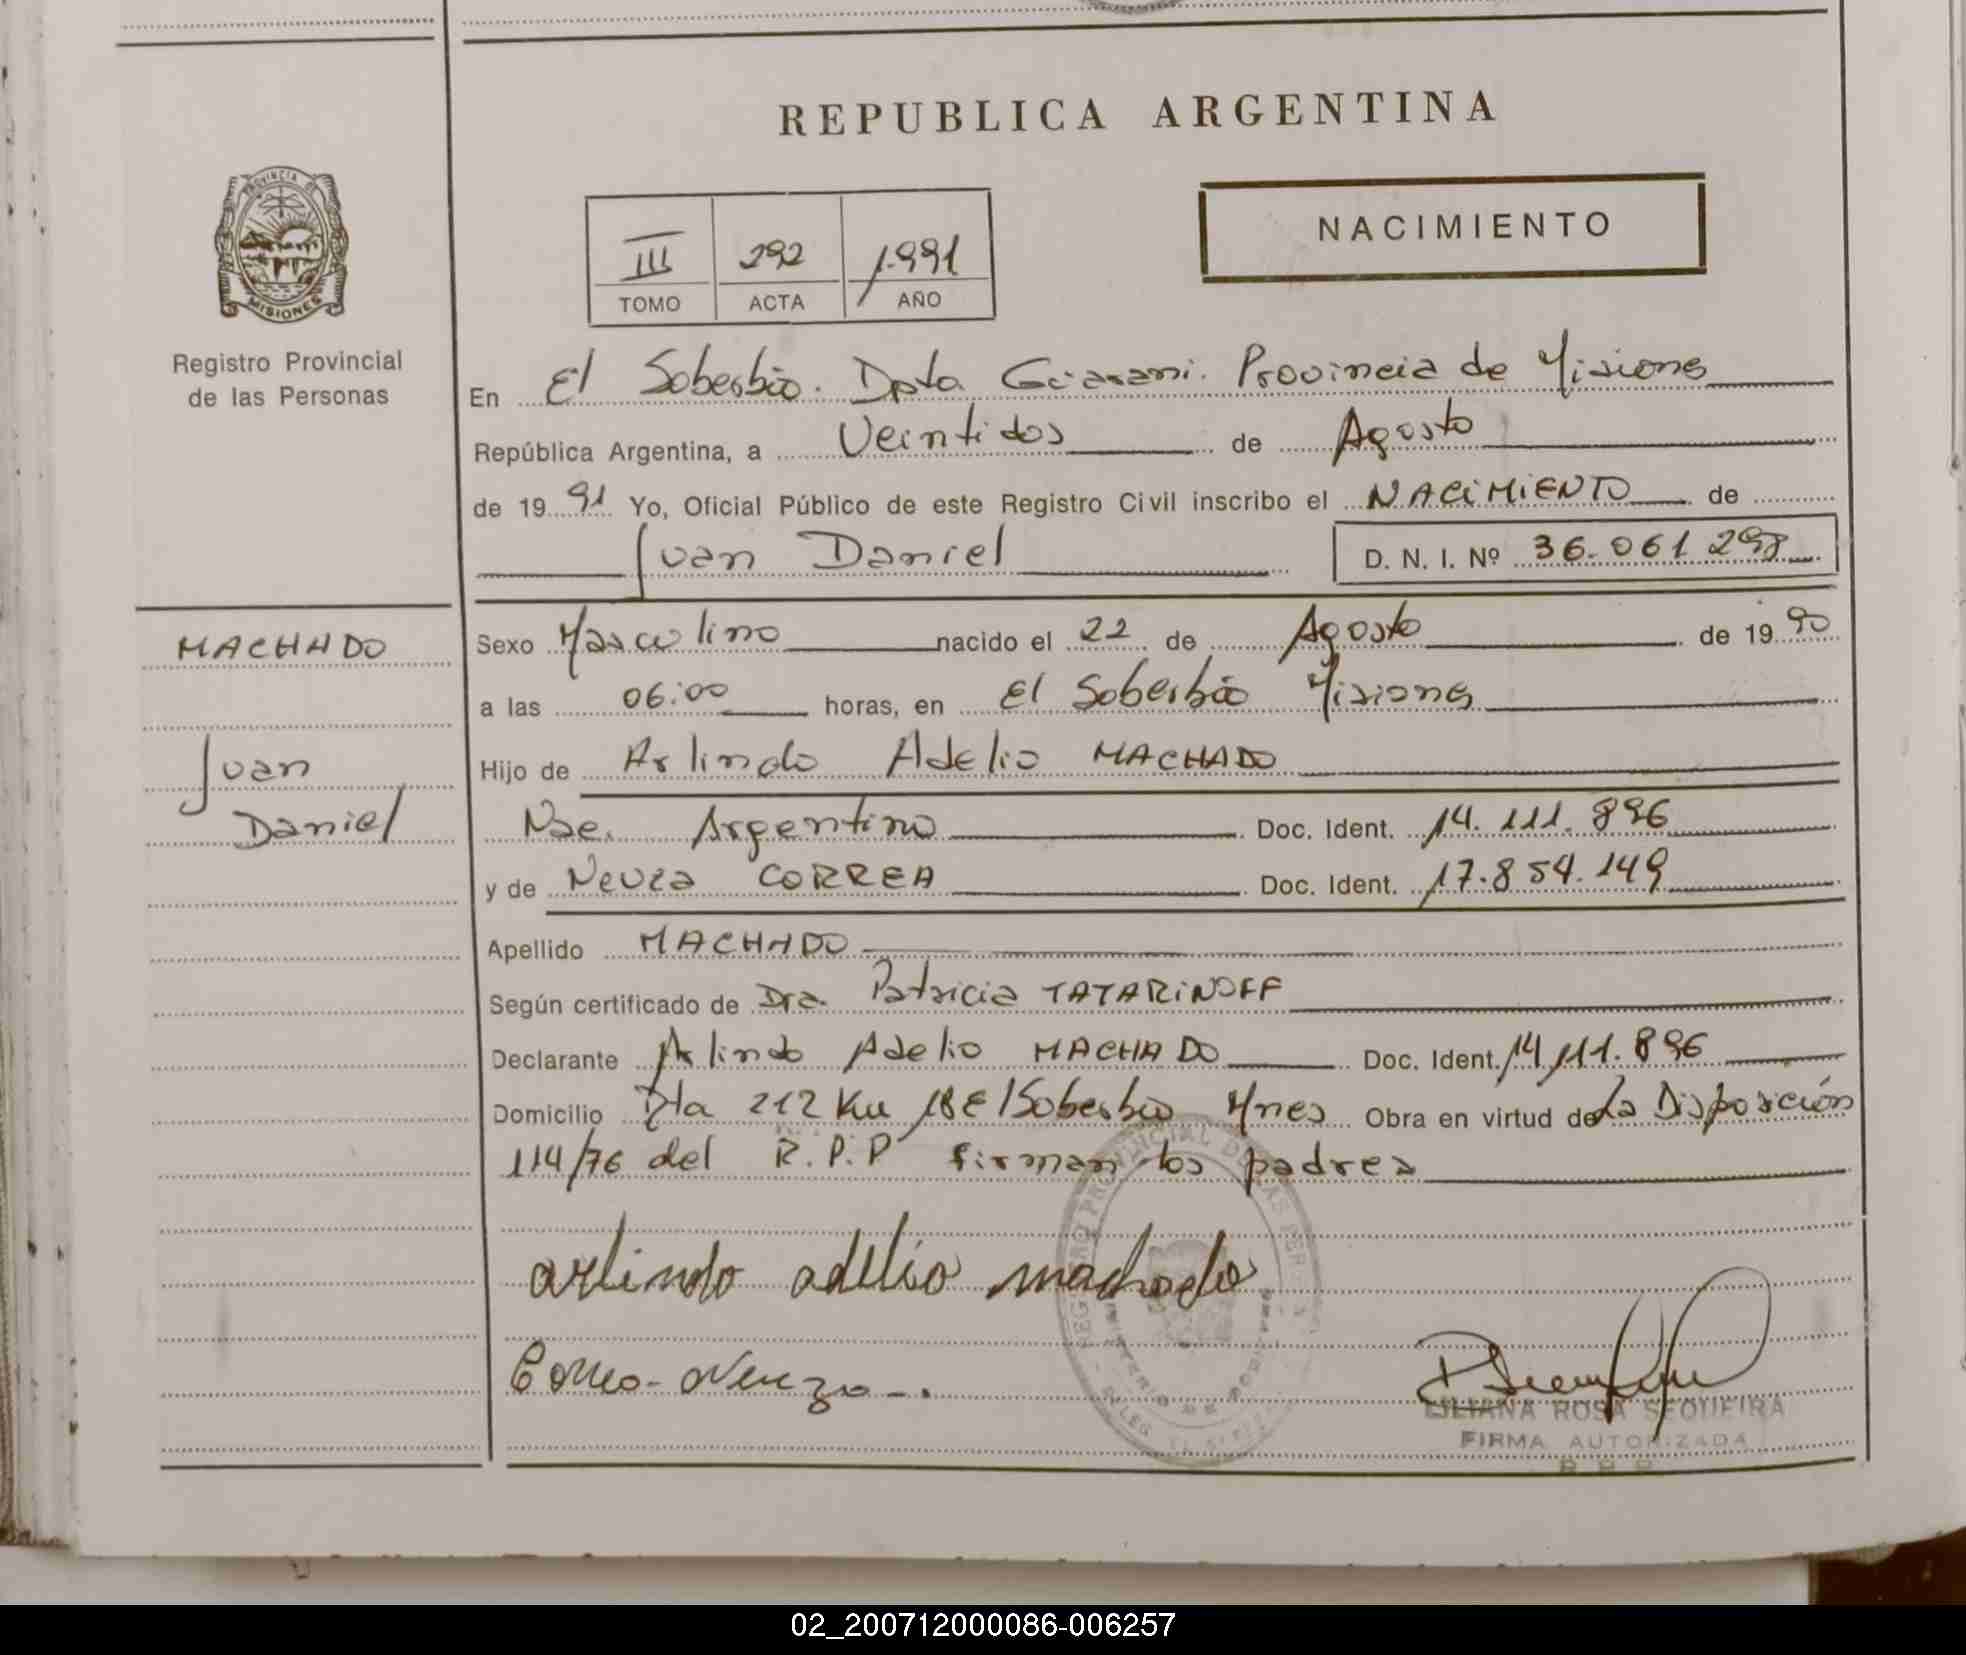 REPUBLICA ARGENTINA
NACIMIENTO
III 292 1.991
TOMO ACTA AÑO
PROVINCIA DE
MISIONES
Registro Provincial
de las Personas
En El Soberbio. Dpto. Guarani. Provincia de Misiones
República Argentina, a Veintidos de Agosto
de 19 91 Yo, Oficial Público de este Registro Civil inscribo el NACIMIENTO de
Juan Daniel D. N. I. Nº 36.061.298
MACHADO
Juan
Daniel
Sexo Masculino nacido el 22 de Agosto de 19 90
a las 06:00 horas, en El Soberbio Misiones
Hijo de Arlindo Adelio MACHADO
Nac. Argentino Doc. Ident. 14.111.896
y de Neuza CORREA Doc. Ident. 17.854.149
Apellido MACHADO
Según certificado de Dra. Patricia TATARINOFF
Declarante Arlindo Adelio MACHADO Doc. Ident. 14.111.896
Domicilio Rta 212 Km 18 El Soberbio Mnes Obra en virtud de La Disposición
114/76 del R.P.P firman los padres
arlindo adelio machado
Correa Neuza
LILIANA ROSA SEQUEIRA
FIRMA AUTORIZADA
02_200712000086-006257